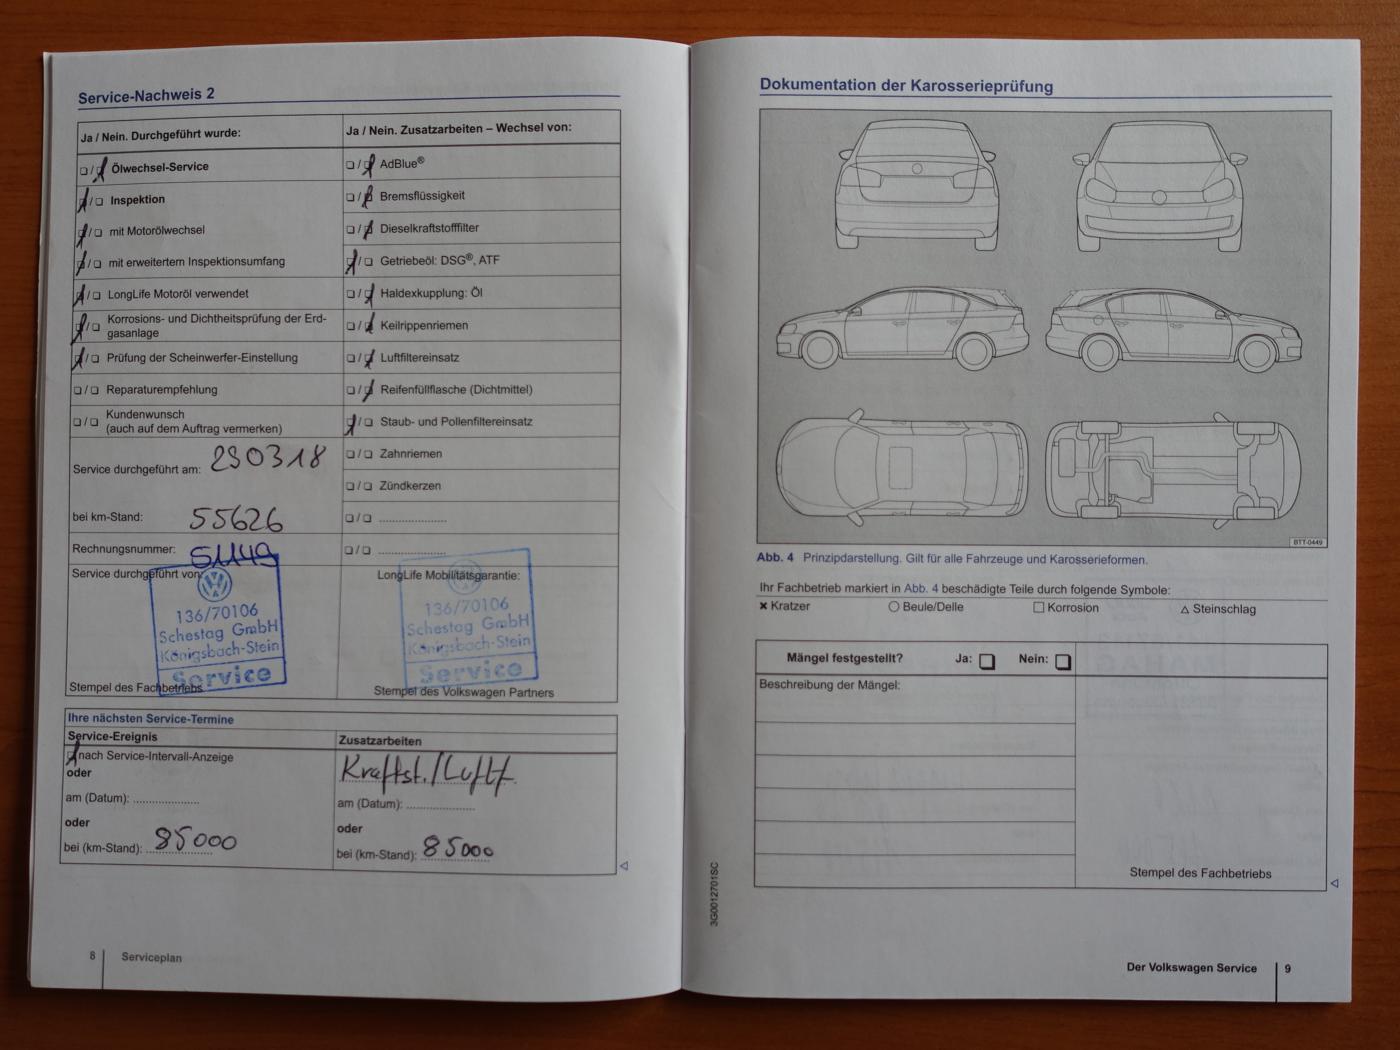 Service-Nachweis 2
Ja / Nein. Durchgeführt wurde:
❏ / ❏ Ölwechsel-Service
❏ / ❏ Inspektion
❏ / ❏ mit Motorölwechsel
❏ / ❏ mit erweitertem Inspektionsumfang
❏ / ❏ LongLife Motoröl verwendet
❏ / ❏ Korrosions- und Dichtheitsprüfung der Erd-
gasanlage
❏ / ❏ Prüfung der Scheinwerfer-Einstellung
❏ / ❏ Reparaturempfehlung
❏ / ❏ Kundenwunsch
(auch auf dem Auftrag vermerken)
Service durchgeführt am: 290318
bei km-Stand: 55626
Rechnungsnummer: 51149
Service durchgeführt von:
136/70106
Schestag GmbH
Königsbach-Stein
Service
Stempel des Fachbetriebs
Ja / Nein. Zusatzarbeiten – Wechsel von:
❏ / ❏ AdBlue®
❏ / ❏ Bremsflüssigkeit
❏ / ❏ Dieselkraftstofffilter
❏ / ❏ Getriebeöl: DSG®, ATF
❏ / ❏ Haldexkupplung: Öl
❏ / ❏ Keilrippenriemen
❏ / ❏ Luftfiltereinsatz
❏ / ❏ Reifenfüllflasche (Dichtmittel)
❏ / ❏ Staub- und Pollenfiltereinsatz
❏ / ❏ Zahnriemen
❏ / ❏ Zündkerzen
❏ / ❏ ......................
❏ / ❏ ......................
LongLife Mobilitätsgarantie:
136/70106
Schestag GmbH
Königsbach-Stein
Service
Stempel des Volkswagen Partners
Ihre nächsten Service-Termine
Service-Ereignis
nach Service-Intervall-Anzeige
oder
am (Datum): ......................
oder
bei (km-Stand): 85000
Zusatzarbeiten
Kraftst./Luftf.
am (Datum): ......................
oder
bei (km-Stand): 85000
8 Serviceplan
Dokumentation der Karosserieprüfung
BTT-0449
Abb. 4 Prinzipdarstellung. Gilt für alle Fahrzeuge und Karosserieformen.
Ihr Fachbetrieb markiert in Abb. 4 beschädigte Teile durch folgende Symbole:
✖ Kratzer ○ Beule/Delle □ Korrosion △ Steinschlag
Mängel festgestellt? Ja: ❏ Nein: ❏
Beschreibung der Mängel:
Stempel des Fachbetriebs
3G0012701SC
Der Volkswagen Service 9